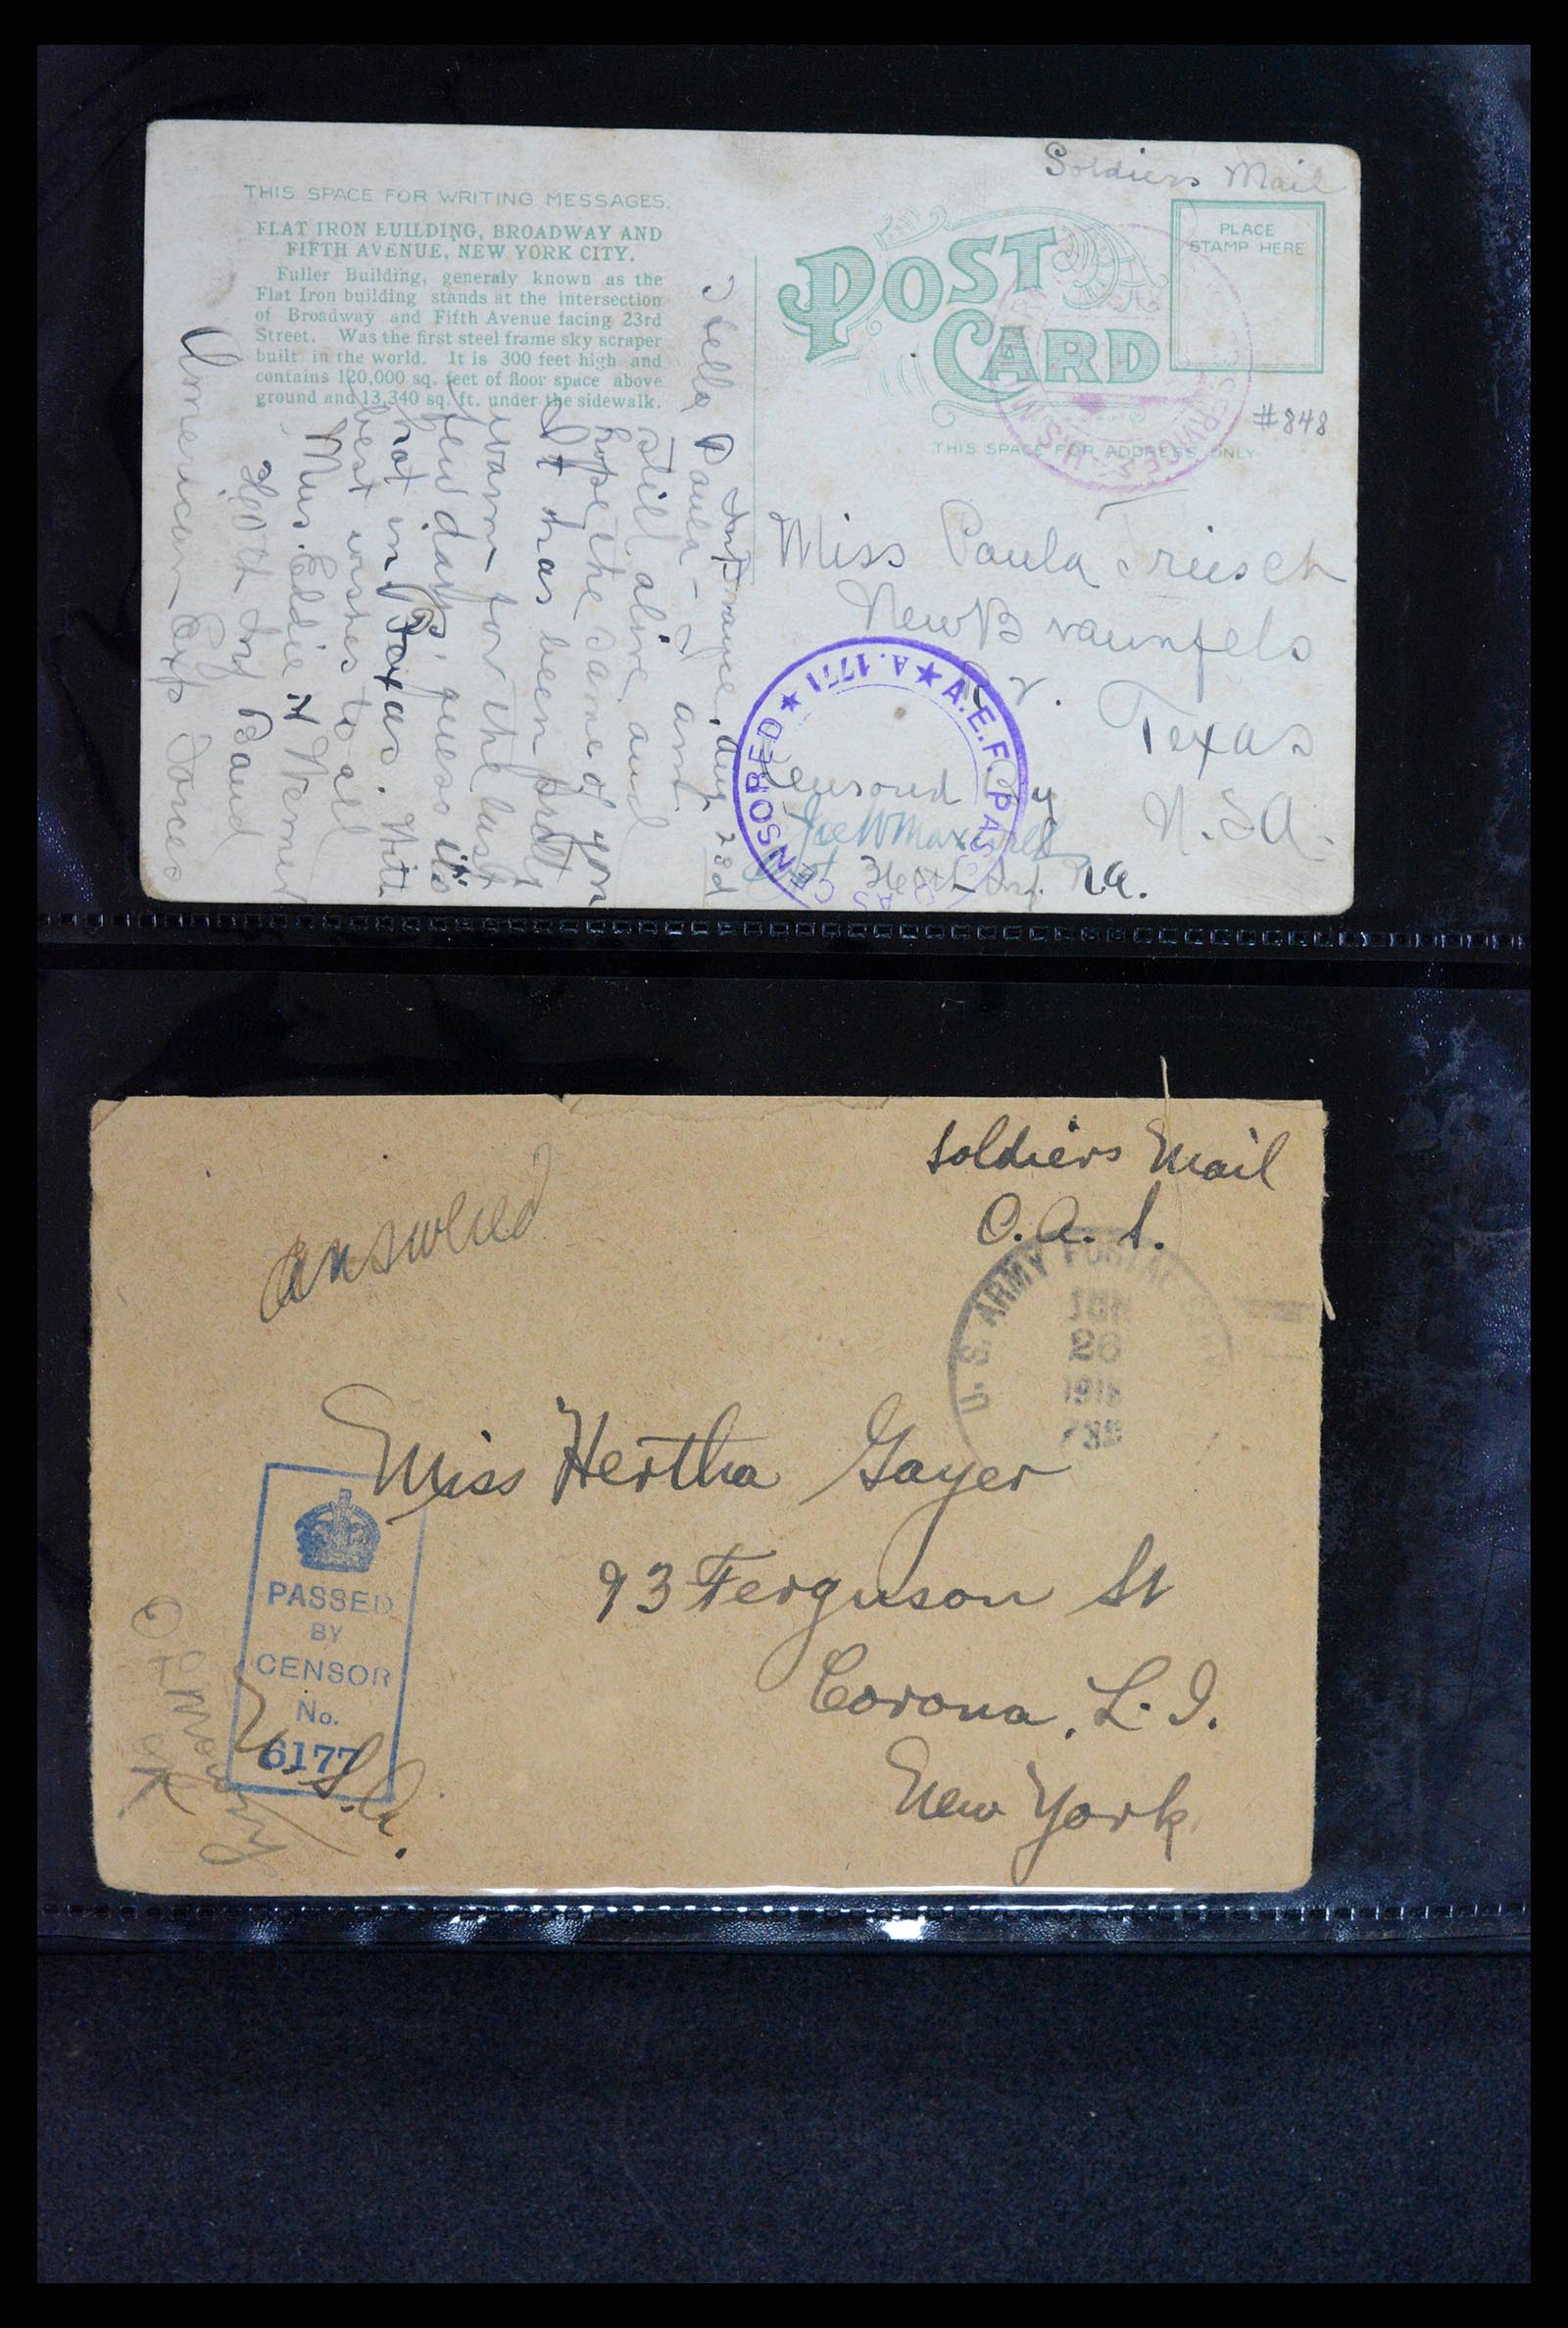 Soldiers Mail
THIS SPACE FOR WRITING MESSAGES.
FLAT IRON BUILDING, BROADWAY AND
FIFTH AVENUE, NEW YORK CITY.
Fuller Building, generaly known as the
Flat Iron building stands at the intersection
of Broadway and Fifth Avenue facing 23rd
Street. Was the first steel frame sky scraper
built in the world. It is 300 feet high and
contains 120,000 sq. feet of floor space above
ground and 13,340 sq. ft. under the sidewalk.
In France, Aug 23d
Hello Paula - I am
still alive and
hope the same of you
It has been
warm for the last
few days, guess it's
hot in Texas. With
best wishes to all
Mus. Eddie H
Inf Band
American Exp Forces
POST
CARD
PLACE
STAMP HERE
SERVICE
#848
THIS SPACE FOR ADDRESS ONLY
Miss Paula Triesch
New Braunfels
Texas
U.S.A.
A.E.F. PASSED AS CENSORED ★ A.1771 ★
Censored by
Joe W Maxwell
Inf. N.A.
Soldiers Mail
O.A.S.
answered
U.S. ARMY POSTAL
26
Miss Hertha Gayer
93 Ferguson St
Corona, L.I.
New York
U.S.A.
PASSED
BY
CENSOR
No.
6177
OK